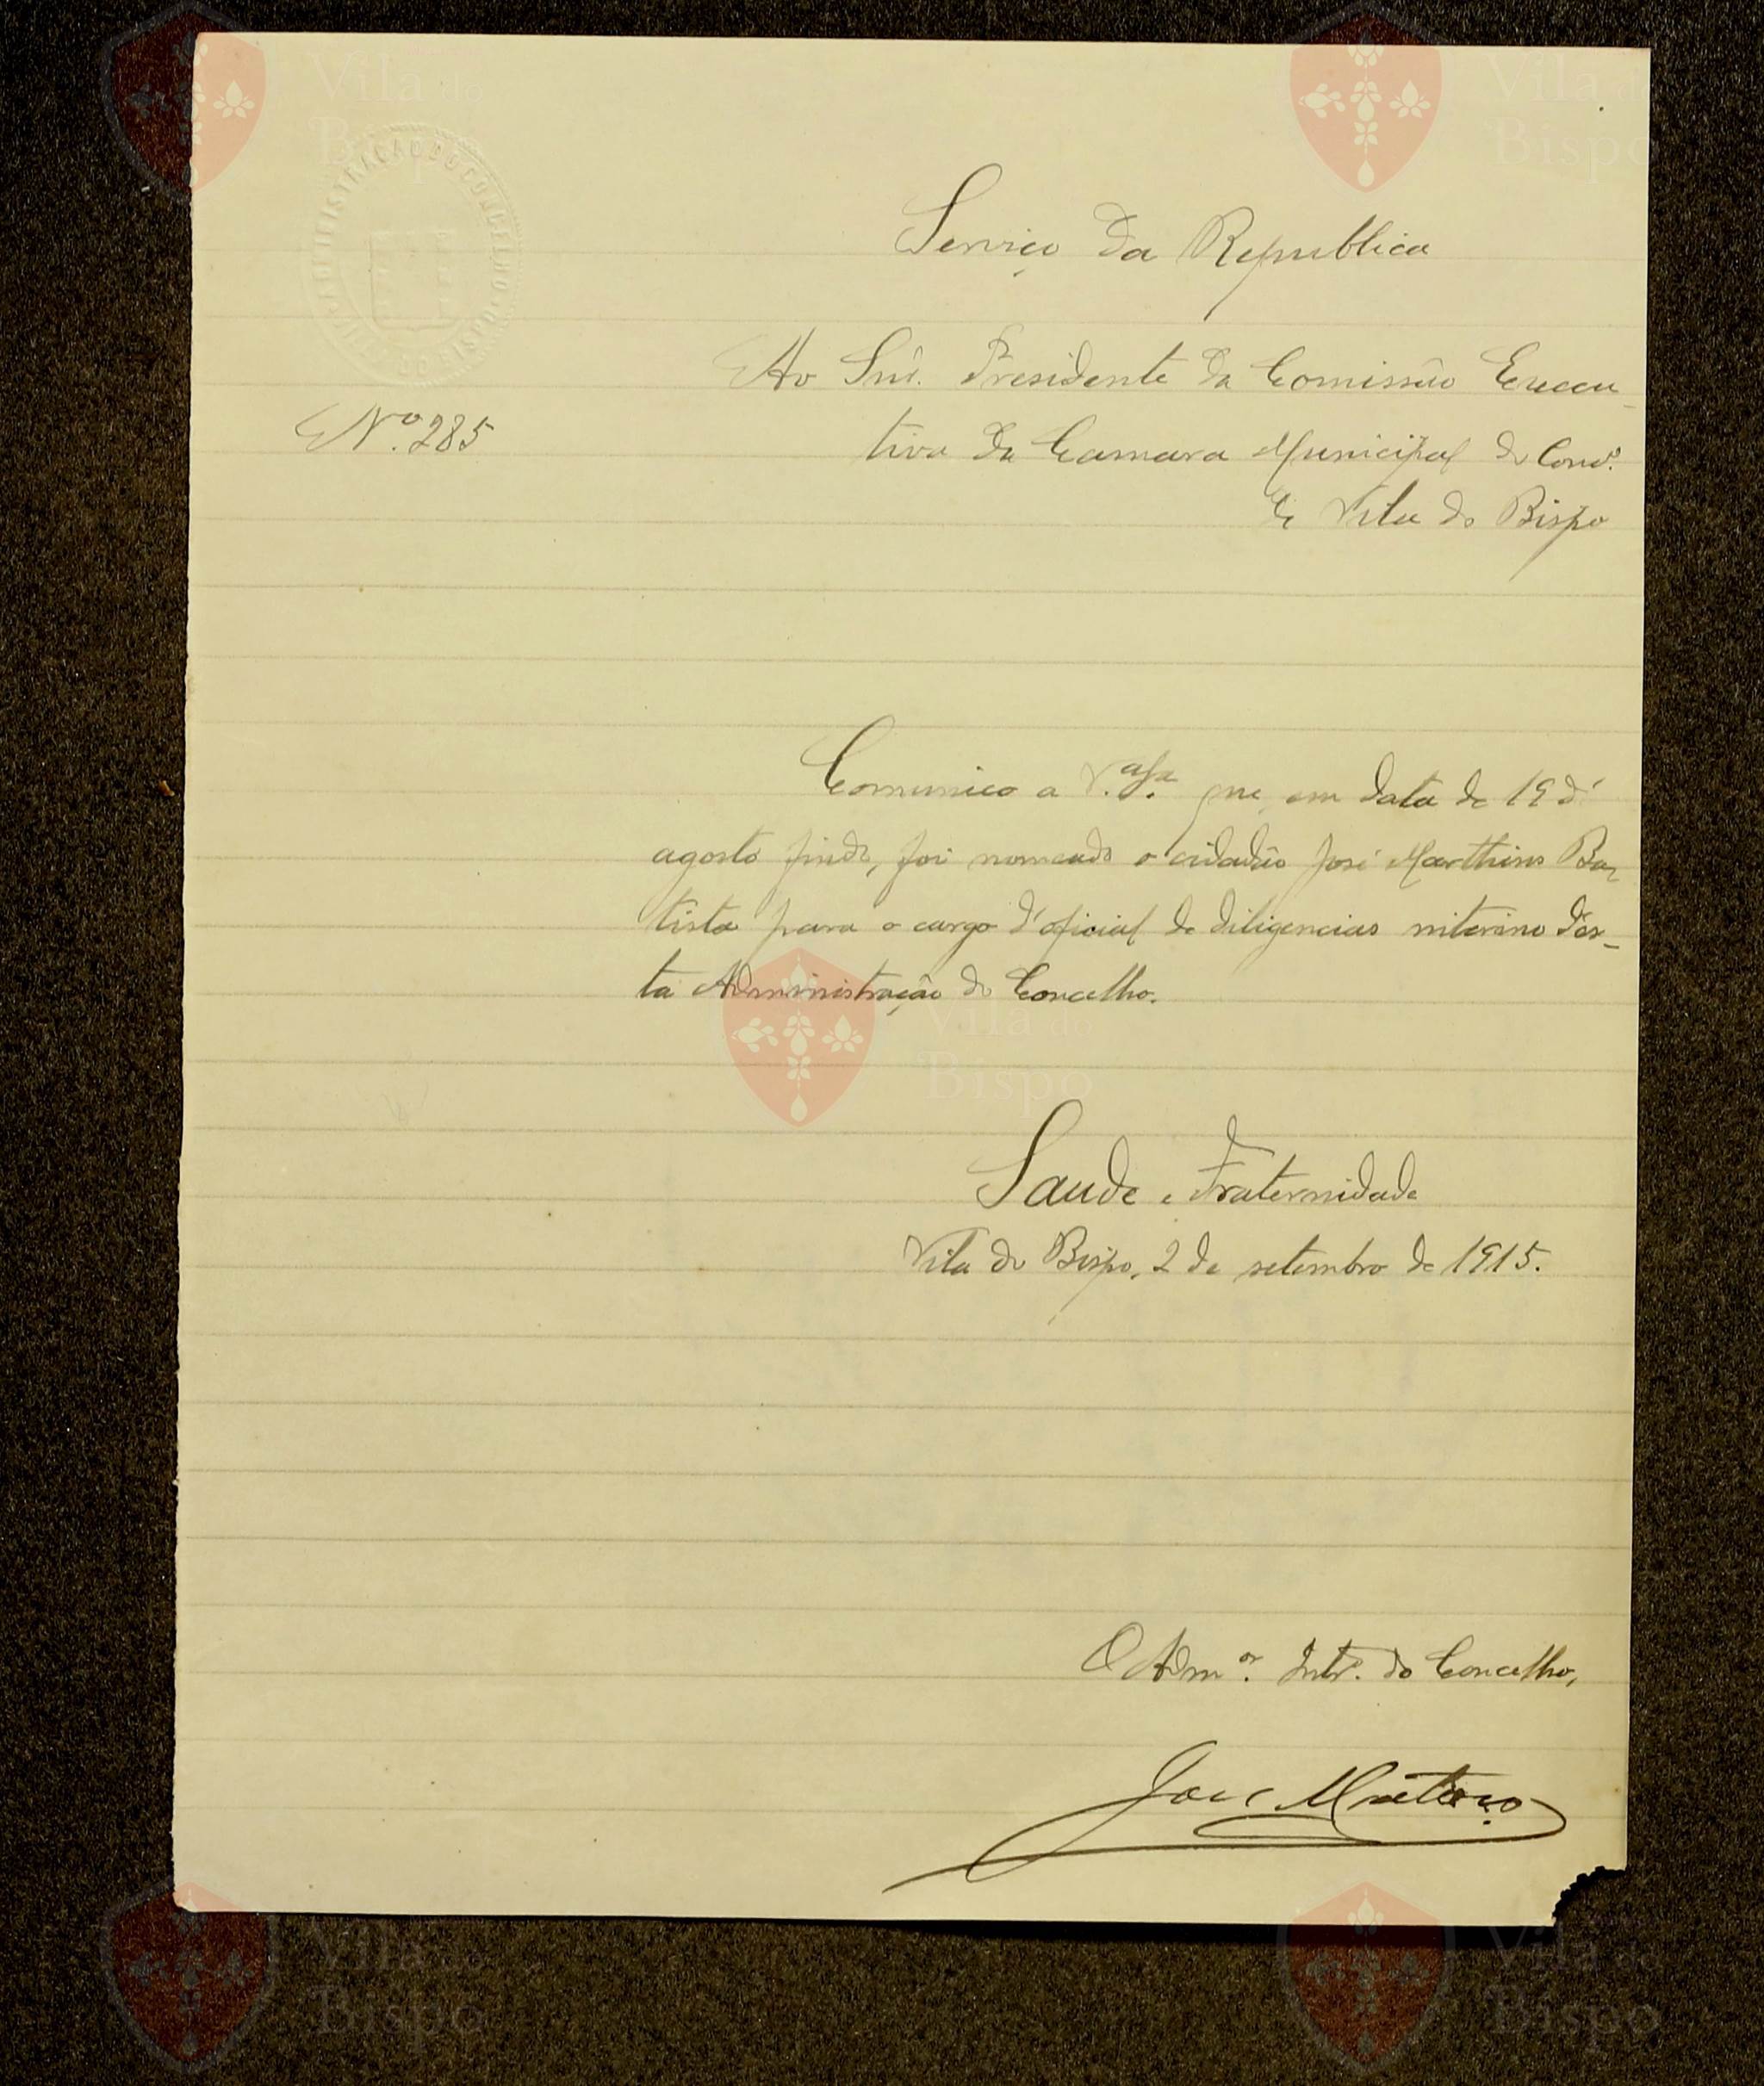 Vila do
Bispo
Vila do
Bispo
ADMINISTRAÇÃO DO CONCELHO DE VILA DO BISPO
Serviço da Republica
Ao Snr. Presidente da Comissão Execu-
tiva da Camara Municipal do Conc.º
de Vila do Bispo
Nº. 285
Comunico a V. que, em data de 19 d'
agosto findo, foi nomeado o cidadão José Marthins Ba-
tista para o cargo d'oficial de diligencias interino dés-
ta Administração do Concelho.
Vila do
Bispo
Saude e Fraternidade
Vila do Bispo, 2 de setembro de 1915.
O Adm.or Intr.º do Concelho,
José
Vila do
Bispo
Vila do
Bispo